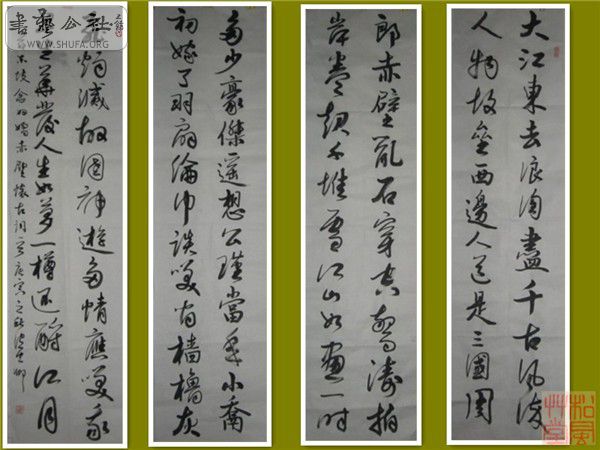 大江東去浪淘盡千古風流
人物故壘西邊人道是三國周
郎赤壁亂石穿空驚濤拍
岸卷起千堆雪江山如畫一時
多少豪傑遙想公瑾當年小喬
初嫁了羽扇綸巾談笑間檣櫓灰
飛煙滅故國神遊多情應笑我
早生華發人生如夢一樽還酹江月
東坡念奴嬌赤壁懷古詞庚寅之秋
書艺公社
WWW.SHUFA.ORG
松風
艸堂